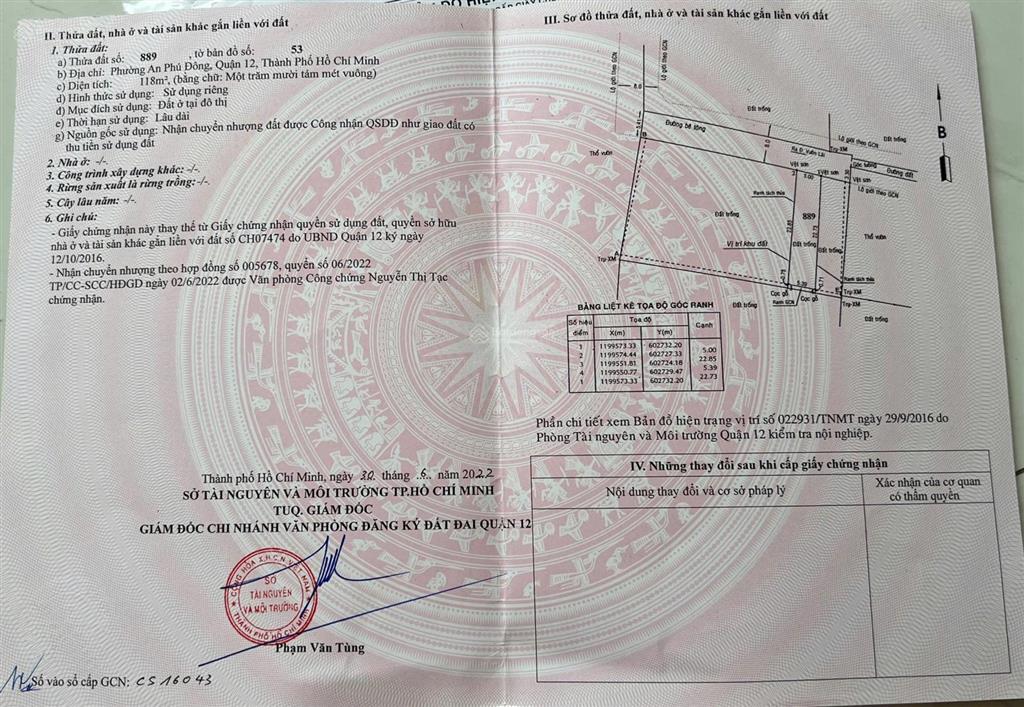 II. Thửa đất, nhà ở và tài sản khác gắn liền với đất
1. Thửa đất:
a) Thửa đất số: 889 , tờ bản đồ số: 53
b) Địa chỉ: Phường An Phú Đông, Quận 12, Thành Phố Hồ Chí Minh
c) Diện tích: 118m², (bằng chữ: Một trăm mười tám mét vuông)
d) Hình thức sử dụng: Sử dụng riêng
đ) Mục đích sử dụng: Đất ở tại đô thị
e) Thời hạn sử dụng: Lâu dài
g) Nguồn gốc sử dụng: Nhận chuyển nhượng đất được Công nhận QSDĐ như giao đất có
thu tiền sử dụng đất
2. Nhà ở: -/-.
3. Công trình xây dựng khác: -/-.
4. Rừng sản xuất là rừng trồng:-/-.
5. Cây lâu năm: -/-.
6. Ghi chú:
- Giấy chứng nhận này thay thế từ Giấy chứng nhận quyền sử dụng đất, quyền sở hữu
nhà ở và tài sản khác gắn liền với đất số CH07474 do UBND Quận 12 ký ngày
12/10/2016.
- Nhận chuyển nhượng theo hợp đồng số 005678, quyển số 06/2022
TP/CC-SCC/HĐGD ngày 02/6/2022 được Văn phòng Công chứng Nguyễn Thị Tạc
chứng nhận.
Thành phố Hồ Chí Minh, ngày 30 tháng .6. năm 2022
SỞ TÀI NGUYÊN VÀ MÔI TRƯỜNG TP.HỒ CHÍ MINH
TUQ. GIÁM ĐỐC
GIÁM ĐỐC CHI NHÁNH VĂN PHÒNG ĐĂNG KÝ ĐẤT ĐAI QUẬN 12
CỘNG HÒA X.H.C.N VIỆT NAM
SỞ
TÀI NGUYÊN
VÀ MÔI TRƯỜNG
THÀNH PHỐ HỒ CHÍ MINH
Phạm Văn Tùng
Số vào sổ cấp GCN: CS16043
III. Sơ đồ thửa đất, nhà ở và tài sản khác gắn liền với đất
Lộ giới theo GCN
Lộ giới theo GCN
8.0
B
Đất trống
Đường bê tông
6.0
Lộ giới theo GCN
Đất trống
Ra Đ. Vườn Lài
Trụ XM
Góc tường
Đường đất
Vệt sơn
Vệt sơn
Vệt sơn
Lộ giới theo GCN
B
Thổ vườn
2
5.00
1
3.50
Ranh tách thửa
Đất trống
889
22.85
22.73
Thổ vườn
Vị trí khu đất
Đất trống
Đất trống
A
Trụ XM
0.75
0.71
5.39
Ranh tách thửa
Trụ XM
Cọc gỗ
Cọc gỗ
Ranh GCN
Trụ XM
Đất trống
Đất trống
BẢNG LIỆT KÊ TỌA ĐỘ GÓC RANH
Số hiệu điểm Tọa độ Cạnh
X(m) Y(m)
1 1199573.33 602732.20
5.00
2 1199574.44 602727.33
22.85
3 1199551.81 602724.18
5.39
4 1199550.77 602729.47
22.73
1 1199573.33 602732.20
Phần chi tiết xem Bản đồ hiện trạng vị trí số 022931/TNMT ngày 29/9/2016 do
Phòng Tài nguyên và Môi trường Quận 12 kiểm tra nội nghiệp.
IV. Những thay đổi sau khi cấp giấy chứng nhận
Nội dung thay đổi và cơ sở pháp lý
Xác nhận của cơ quan
có thẩm quyền